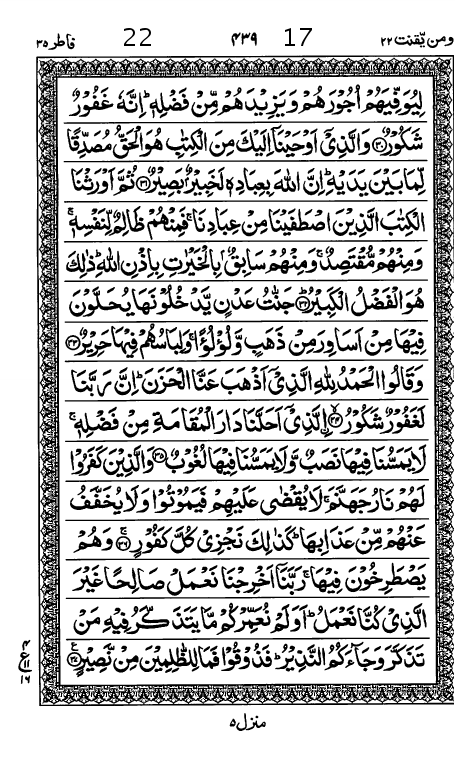 ومن یّقنت ۲۲ 17 ۴۳۹ 22 فاطر ۳۵
لِیُوَفِّیَهُمْ اُجُوْرَهُمْ وَیَزِیْدَهُمْ مِّنْ فَضْلِهٖؕ اِنَّهٗ غَفُوْرٌ
شَكُوْرٌ۝۳۰ وَالَّذِیْۤ اَوْحَیْنَاۤ اِلَیْكَ مِنَ الْكِتٰبِ هُوَ الْحَقُّ مُصَدِّقًا
لِّمَا بَیْنَ یَدَیْهِؕ اِنَّ اللّٰهَ بِعِبَادِهٖ لَخَبِیْرٌۢ بَصِیْرٌ۝۳۱ ثُمَّ اَوْرَثْنَا
الْكِتٰبَ الَّذِیْنَ اصْطَفَیْنَا مِنْ عِبَادِنَاۚ فَمِنْهُمْ ظَالِمٌ لِّنَفْسِهٖۚ
وَمِنْهُمْ مُّقْتَصِدٌۚ وَمِنْهُمْ سَابِقٌۢ بِالْخَیْرٰتِ بِاِذْنِ اللّٰهِؕ ذٰلِكَ
هُوَ الْفَضْلُ الْكَبِیْرُؕ۝۳۲ جَنّٰتُ عَدْنٍ یَّدْخُلُوْنَهَا یُحَلَّوْنَ
فِیْهَا مِنْ اَسَاوِرَ مِنْ ذَهَبٍ وَّلُؤْلُؤًاۚ وَلِبَاسُهُمْ فِیْهَا حَرِیْرٌ۝۳۳
وَقَالُوا الْحَمْدُ لِلّٰهِ الَّذِیْۤ اَذْهَبَ عَنَّا الْحَزَنَؕ اِنَّ رَبَّنَا
لَغَفُوْرٌ شَكُوْرُۙ۝۳۴ اِلَّذِیْۤ اَحَلَّنَا دَارَ الْمُقَامَةِ مِنْ فَضْلِهٖۚ
لَا یَمَسُّنَا فِیْهَا نَصَبٌ وَّلَا یَمَسُّنَا فِیْهَا لُغُوْبٌ۝۳۵ وَالَّذِیْنَ كَفَرُوْا
لَهُمْ نَارُ جَهَنَّمَۚ لَا یُقْضٰی عَلَیْهِمْ فَیَمُوْتُوْا وَلَا یُخَفَّفُ
عَنْهُمْ مِّنْ عَذَابِهَاؕ كَذٰلِكَ نَجْزِیْ كُلَّ كَفُوْرٍۚ۝۳۶ وَهُمْ
یَصْطَرِخُوْنَ فِیْهَاۚ رَبَّنَاۤ اَخْرِجْنَا نَعْمَلْ صَالِحًا غَیْرَ
الَّذِیْ كُنَّا نَعْمَلُؕ اَوَلَمْ نُعَمِّرْكُمْ مَّا یَتَذَكَّرُ فِیْهِ مَنْ
تَذَكَّرَ وَجَآءَكُمُ النَّذِیْرُؕ فَذُوْقُوْا فَمَا لِلظّٰلِمِیْنَ مِنْ نَّصِیْرٍ۠۝۳۷
۴
ع
۱۱
۱۶
منزل ۵